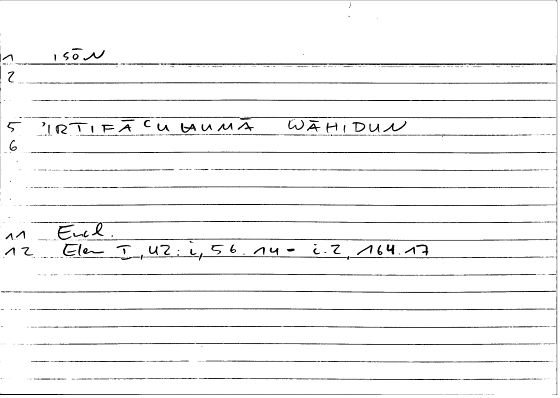 1 ISŌN
2
5 'IRTIFĀʿUHUMĀ WĀḤIDUN
6
11 Eucl.
12 Elem I, 42: i, 56.14 - i.2, 164.17